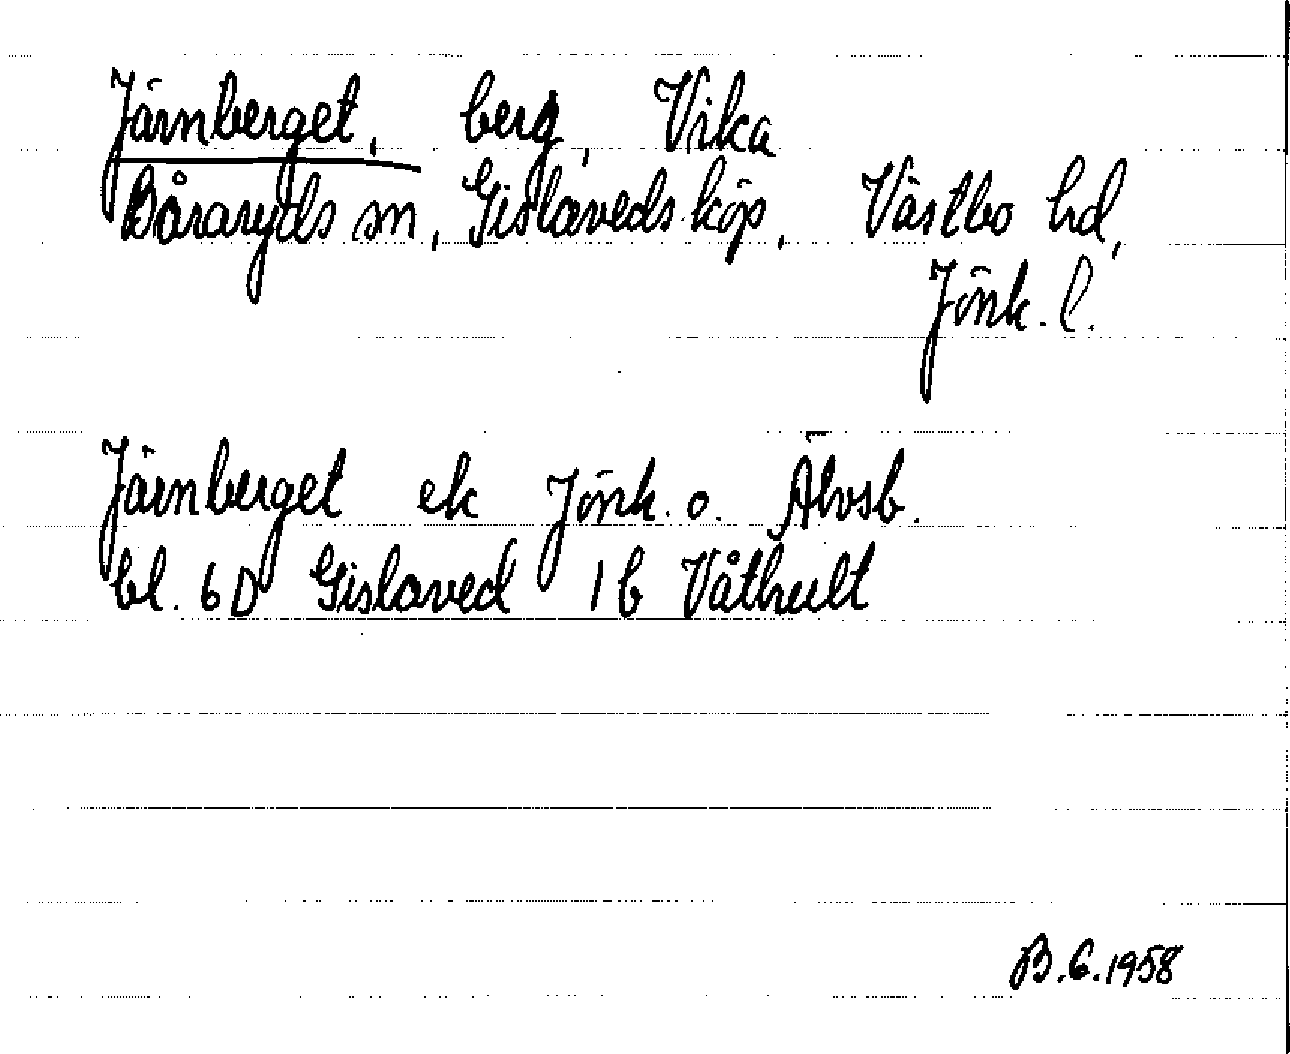 Järnberget, berg, Vika
Båraryds sn, Gislaveds köp, Västbo hd,
Jönk. l.
Järnberget ek Jönk. o. Älvsb.
bl. 6D Gislaved 1b Våthult
B.G.1958